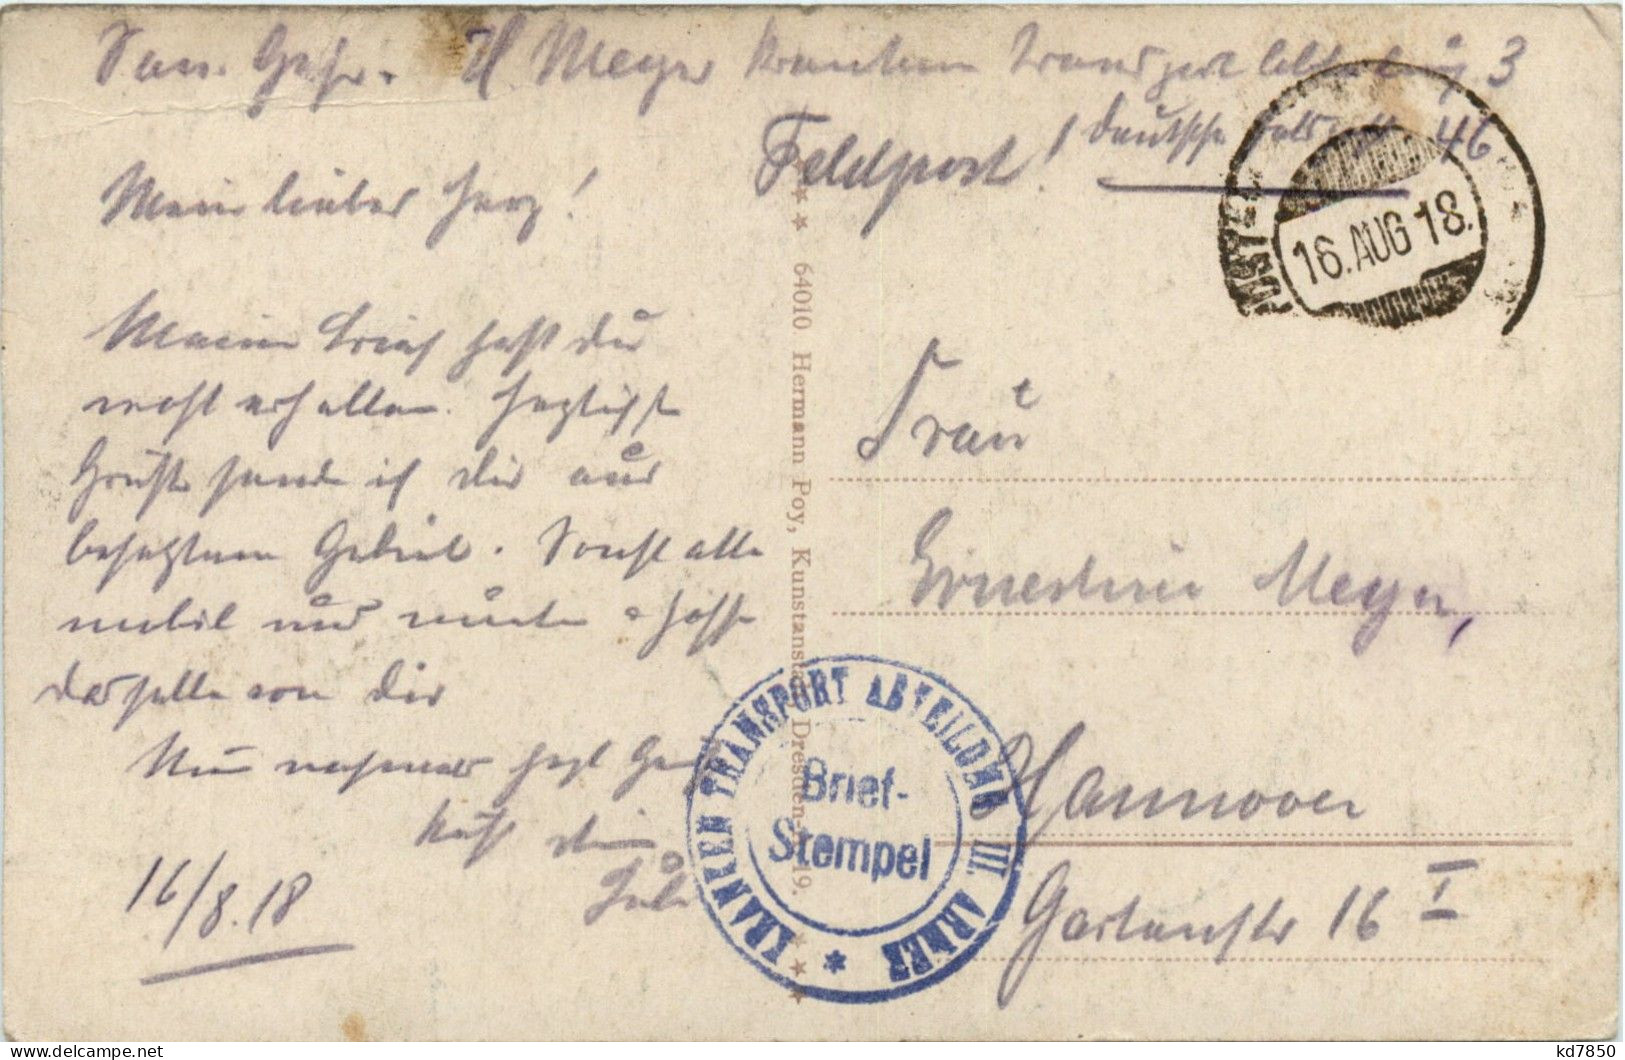 San. Gefr. H. Meyer Kranken Transport Abteilung 3
Feldpost! Deutsche Feldpost 46
16.AUG 18.
Mein lieber Herz!
Meinen Brief hast du
wohl erhalten. Herzlichste
Grüße sende ich dir aus
besetztem Gebiet. Sonst alles
mobil und munter hoffe
dasselbe von dir
Nun nochmals herzl Gruß
Kuß dein
16/8.18
64010 Hermann Poy, Kunstanstalt, Dresden-A. 19.
Frau
Ernestine Meyer,
Hannover
Gartenstr 16 I
KRANKEN TRANSPORT ABTEILUNG III. ARMEE
Brief-
Stempel
kd7850